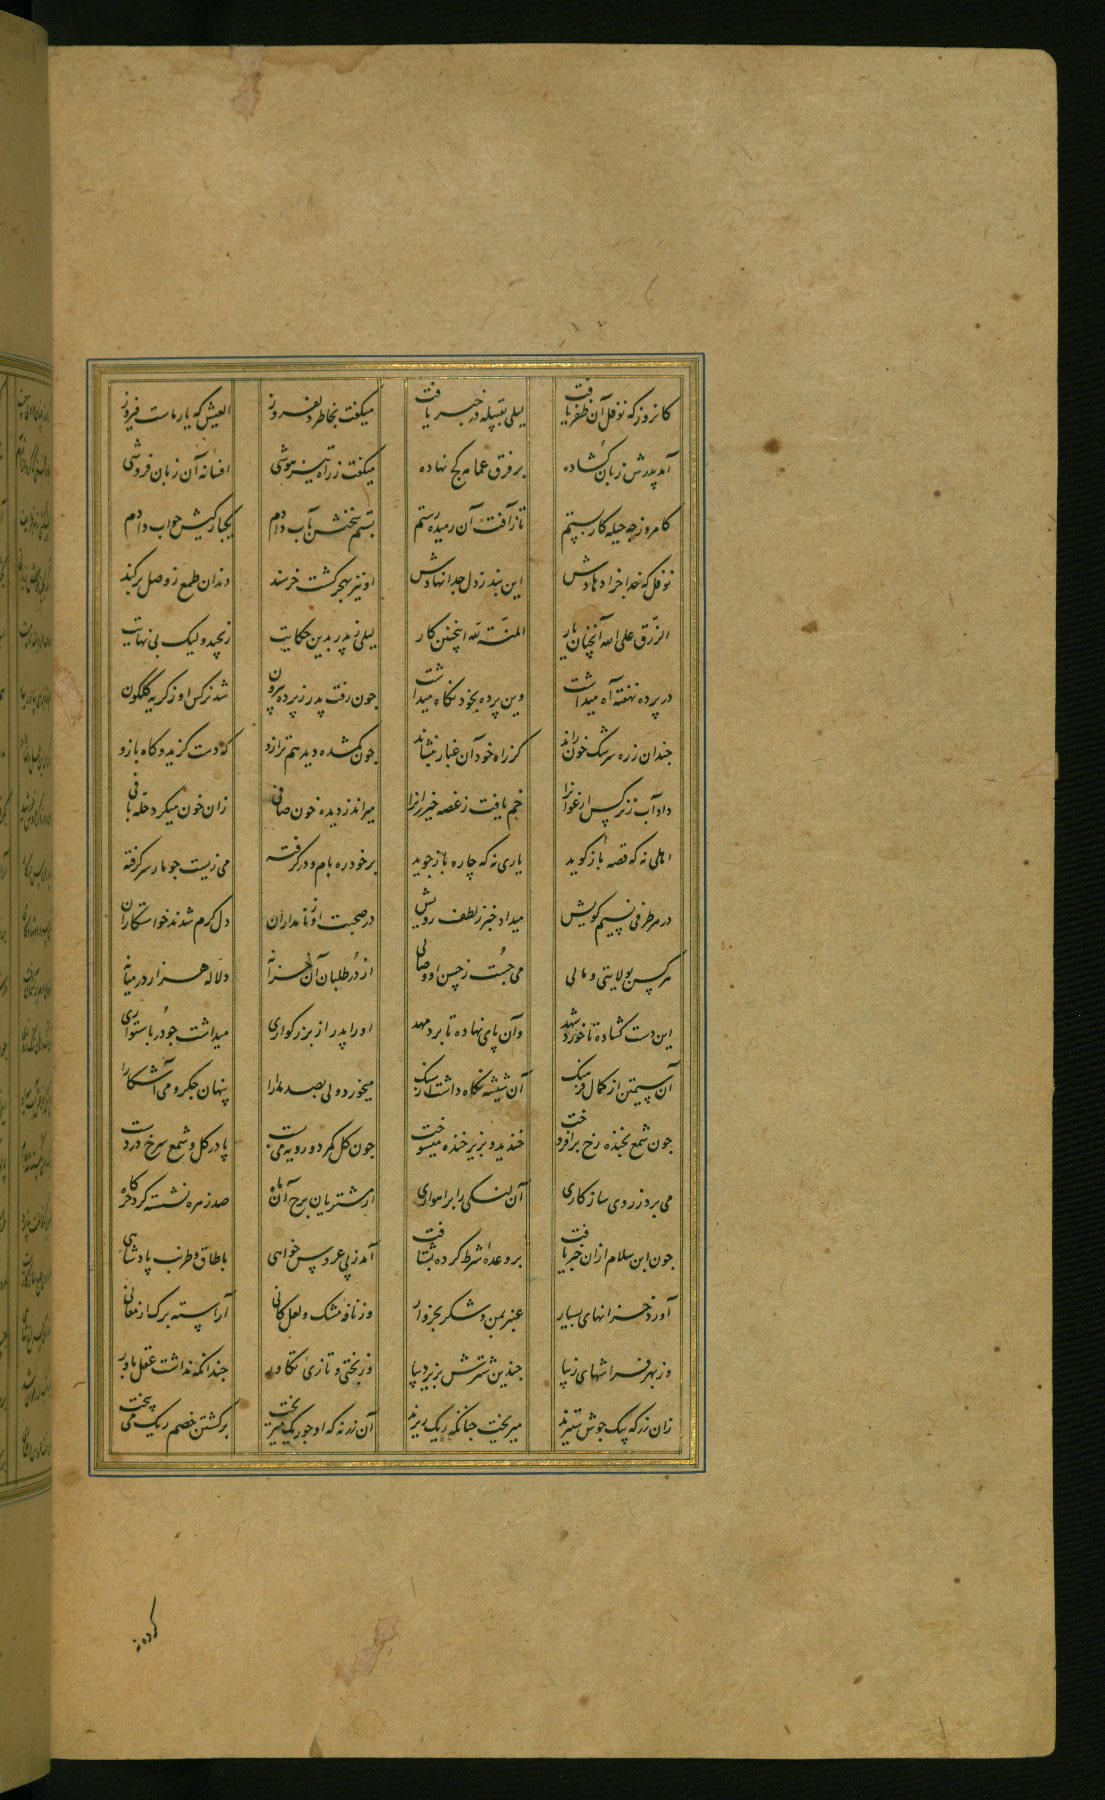 کانروز که نوفل آن ظفر یافت لیلی بقبیله در خبر یافت میگفت بخاطر دلفروز العیش که یار ماست فیروز
آمد پدرش زبان گشاده بر فرق عمامه کج نهاده میگفت ز راه تیزهوشی افسانه آن زبان فروشی
کامروز چه حیله کار بستم تا زآفت آن رمیده رستم بستم سخنش بآب دادم یکبارگیش جواب دادم
نوفل که خدا جزا دهادش این بند ز دل جدا نهادش او نیز بهجر گشت خرسند دندان طمع ز وصل برکند
الرزق علی الله آنچنان یار المنة لله اینچنین کار لیلی ز پدر بدین حکایت رنجید ولیک بی نهایت
در پرده نهفته آه میداشت وین پرده بخود نگاه میداشت چون رفت پدر ز پرده بیرون شد نرگس او ز گریه گلگون
چندان ز ره سرشک خون راند کز راه خود آن غبار بنشاند چون گمشده دید هم ترازو گه دست گزید و گاه بازو
داد آب ز نرگس ارغوانرا خم یافت ز غصه خیزرانرا میراند ز دیده خون صافی زان خون میکرد حله بافی
اهلی نه که قصه باز گوید یاری نه که چاره باز جوید بر خود ره بام و در گرفته می زیست چو مار سر گرفته
در هر طرفی نسیم کویش میداد خبر ز لطف رویش در صحبت او ز نامداران دل گرم شدند خواستکاران
هر کس بولایتی و مالی می جست ز حسن او وصالی از در طلبان آن خزانه دلاله هزار در میانه
این دست کشاده تا خورد شهد وآن پای نهاده تا برد مهد او را پدر از بزرگواری میداشت چو در باستواری
آن سیمتن از کمال فرهنگ آن شیشه نگاه داشت از سنگ میخورد ولی بصد مدارا پنهان جگر و می آشکارا
چون شمع بخنده رخ برافروخت خندید و بزیر خنده میسوخت چون گل کمر دو رویه می بست پا در گل و شمع سرخ در دست
می برد ز روی سازکاری آن لنگی را براهواری از مشتریان برج آن ماه صد زهره نشسته گرد خرگاه
چون ابن سلام ازان خبر یافت بر وعده شرط کرده بشتافت آمد ز پی عروس خواهی با طاق و طرنب پادشاهی
آورد خزانهای بسیار عنبر بمن و شکر بخروار وز نافه مشک و لعل کانی آراسته برگ ارمغانی
وز بهر فراشهای زیبا چندین شترش بزیر دیبا وز بختی و تازی تکاور چندانکه نداشت عقل باور
زان زر که بیک جوش ستیزند میریخت چنانکه ریگ ریزند آن زر نه که او چو ریگ میریخت بر کشتن خصم ریگ می بیخت
کرده نه